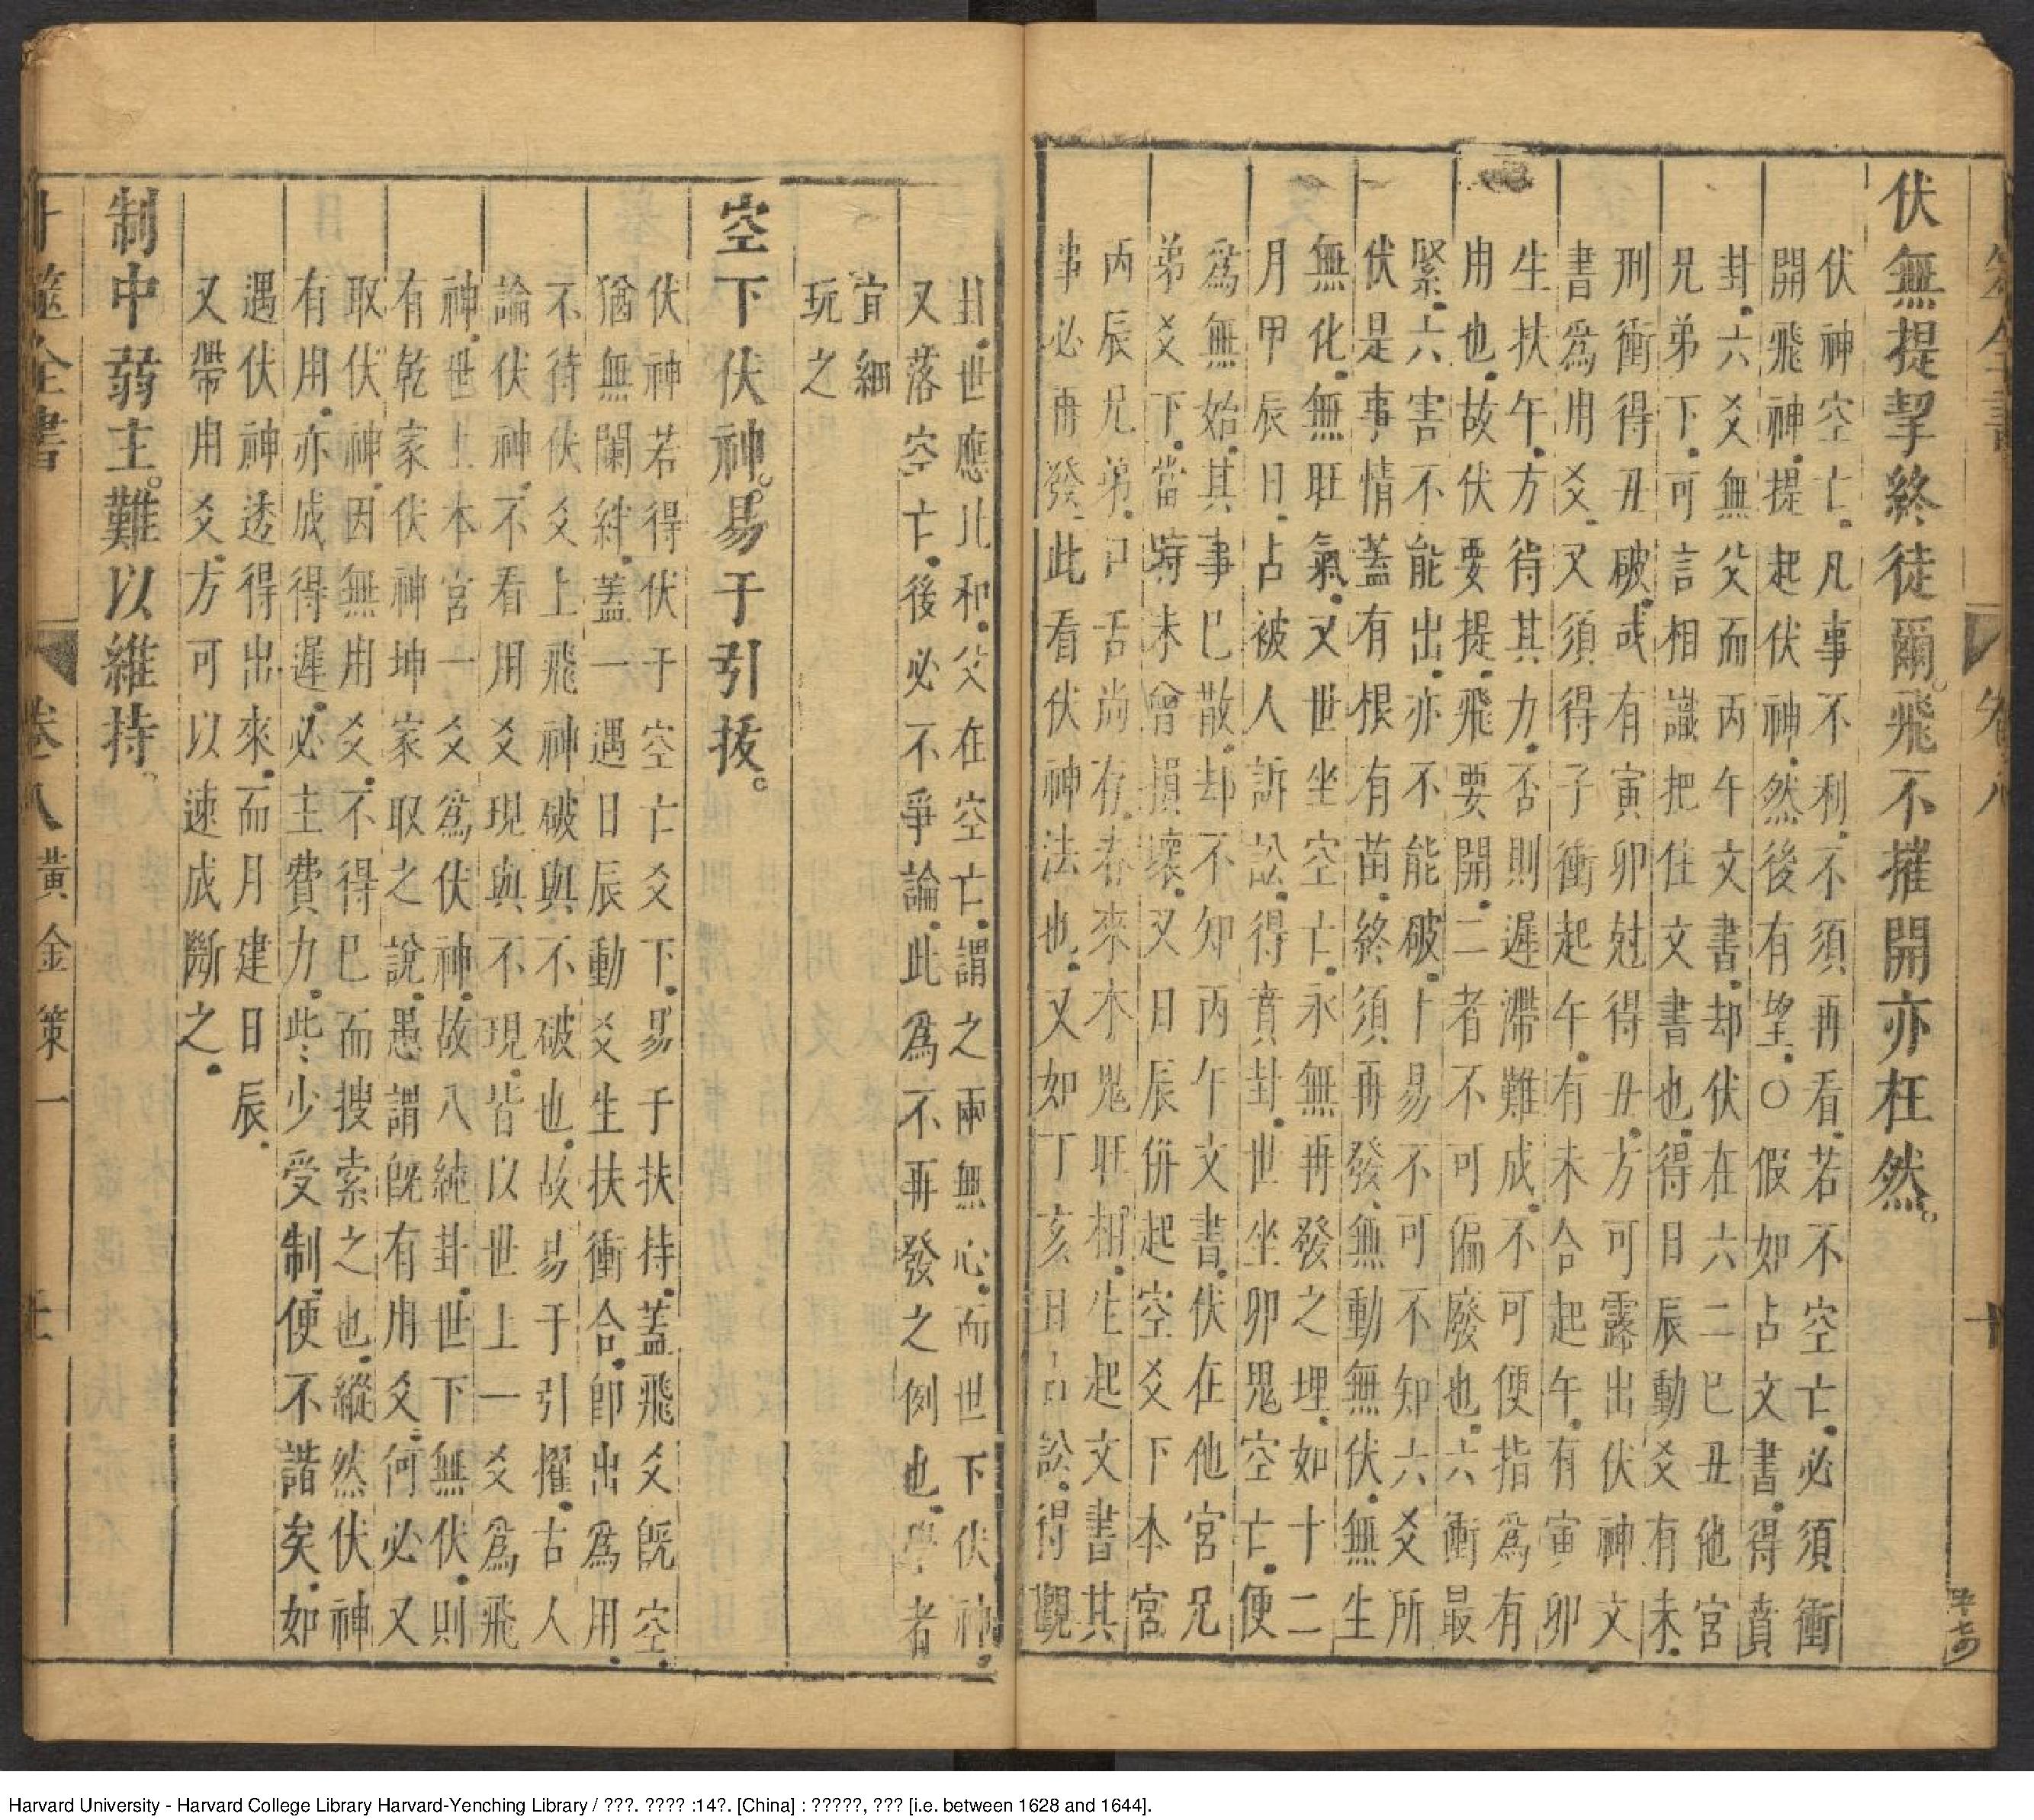 伏無提挈終徒爾。飛不摧開亦枉然。
伏神空亡。凡事不利。不須再看。若不空亡。必須衝
開飛神。提起伏神。然後有望。○假如占文書。得賁
卦。六爻無父。而丙午文書。却伏在六二己丑他宮
兄弟下。可言相識把住文書也。得日辰動爻有未。
刑衝得丑破。或有寅卯尅得丑。方可露出伏神文
書爲用爻。又須得子衝起午。有未合起午。有寅卯
生扶午。方得其力。否則遲滯難成。不可便指爲有
用也。故伏要提。飛要開。二者不可偏廢也。六衝最
緊。六害不能出。亦不能破。卜易不可不知六爻所
伏是事情。蓋有根有苗。終須再發。無動無伏。無生
無化。無旺氣。又世坐空亡。永無再發之理。如十二
月甲辰日。占被人訴訟。得賁卦。世坐卯鬼空亡。便
爲無始。其事已散。却不知丙午文書。伏在他宮兄
弟爻下。當時未曾損壞。又日辰併起空爻下本宮
丙辰兄弟。口舌尚存。春來木鬼旺相。生起文書其
事必再發。此看伏神法也。又如丁亥日占訟。得觀
卦。世應比和。父在空亡。謂之兩無心。而世下伏神。
又落空亡。後必不爭論。此爲不再發之例也。學者
宜細
玩之
空下伏神。易于引拔。
伏神若得伏于空亡爻下。易于扶持。蓋飛爻旣空。
猶無闌絆。蓋一遇日辰動爻生扶衝合。卽出爲用。
不待伏爻上飛神破與不破也。故易于引擢。古人
論伏神。不看用爻現與不現。皆以世上一爻爲飛
神。世上本宮一爻爲伏神。故八純卦。世下無伏。則
有乾家伏神坤家取之說。愚謂旣有用爻。何必又
取伏神。因無用爻。不得已而搜索之也。縱然伏神
有用。亦成得遲。必主費力。此少受制。便不諧矣。如
遇伏神透得出來。而月建日辰。
又帶用爻。方可以速成斷之。
制中弱主。難以維持。
卜筮全書 卷八 黃金策一